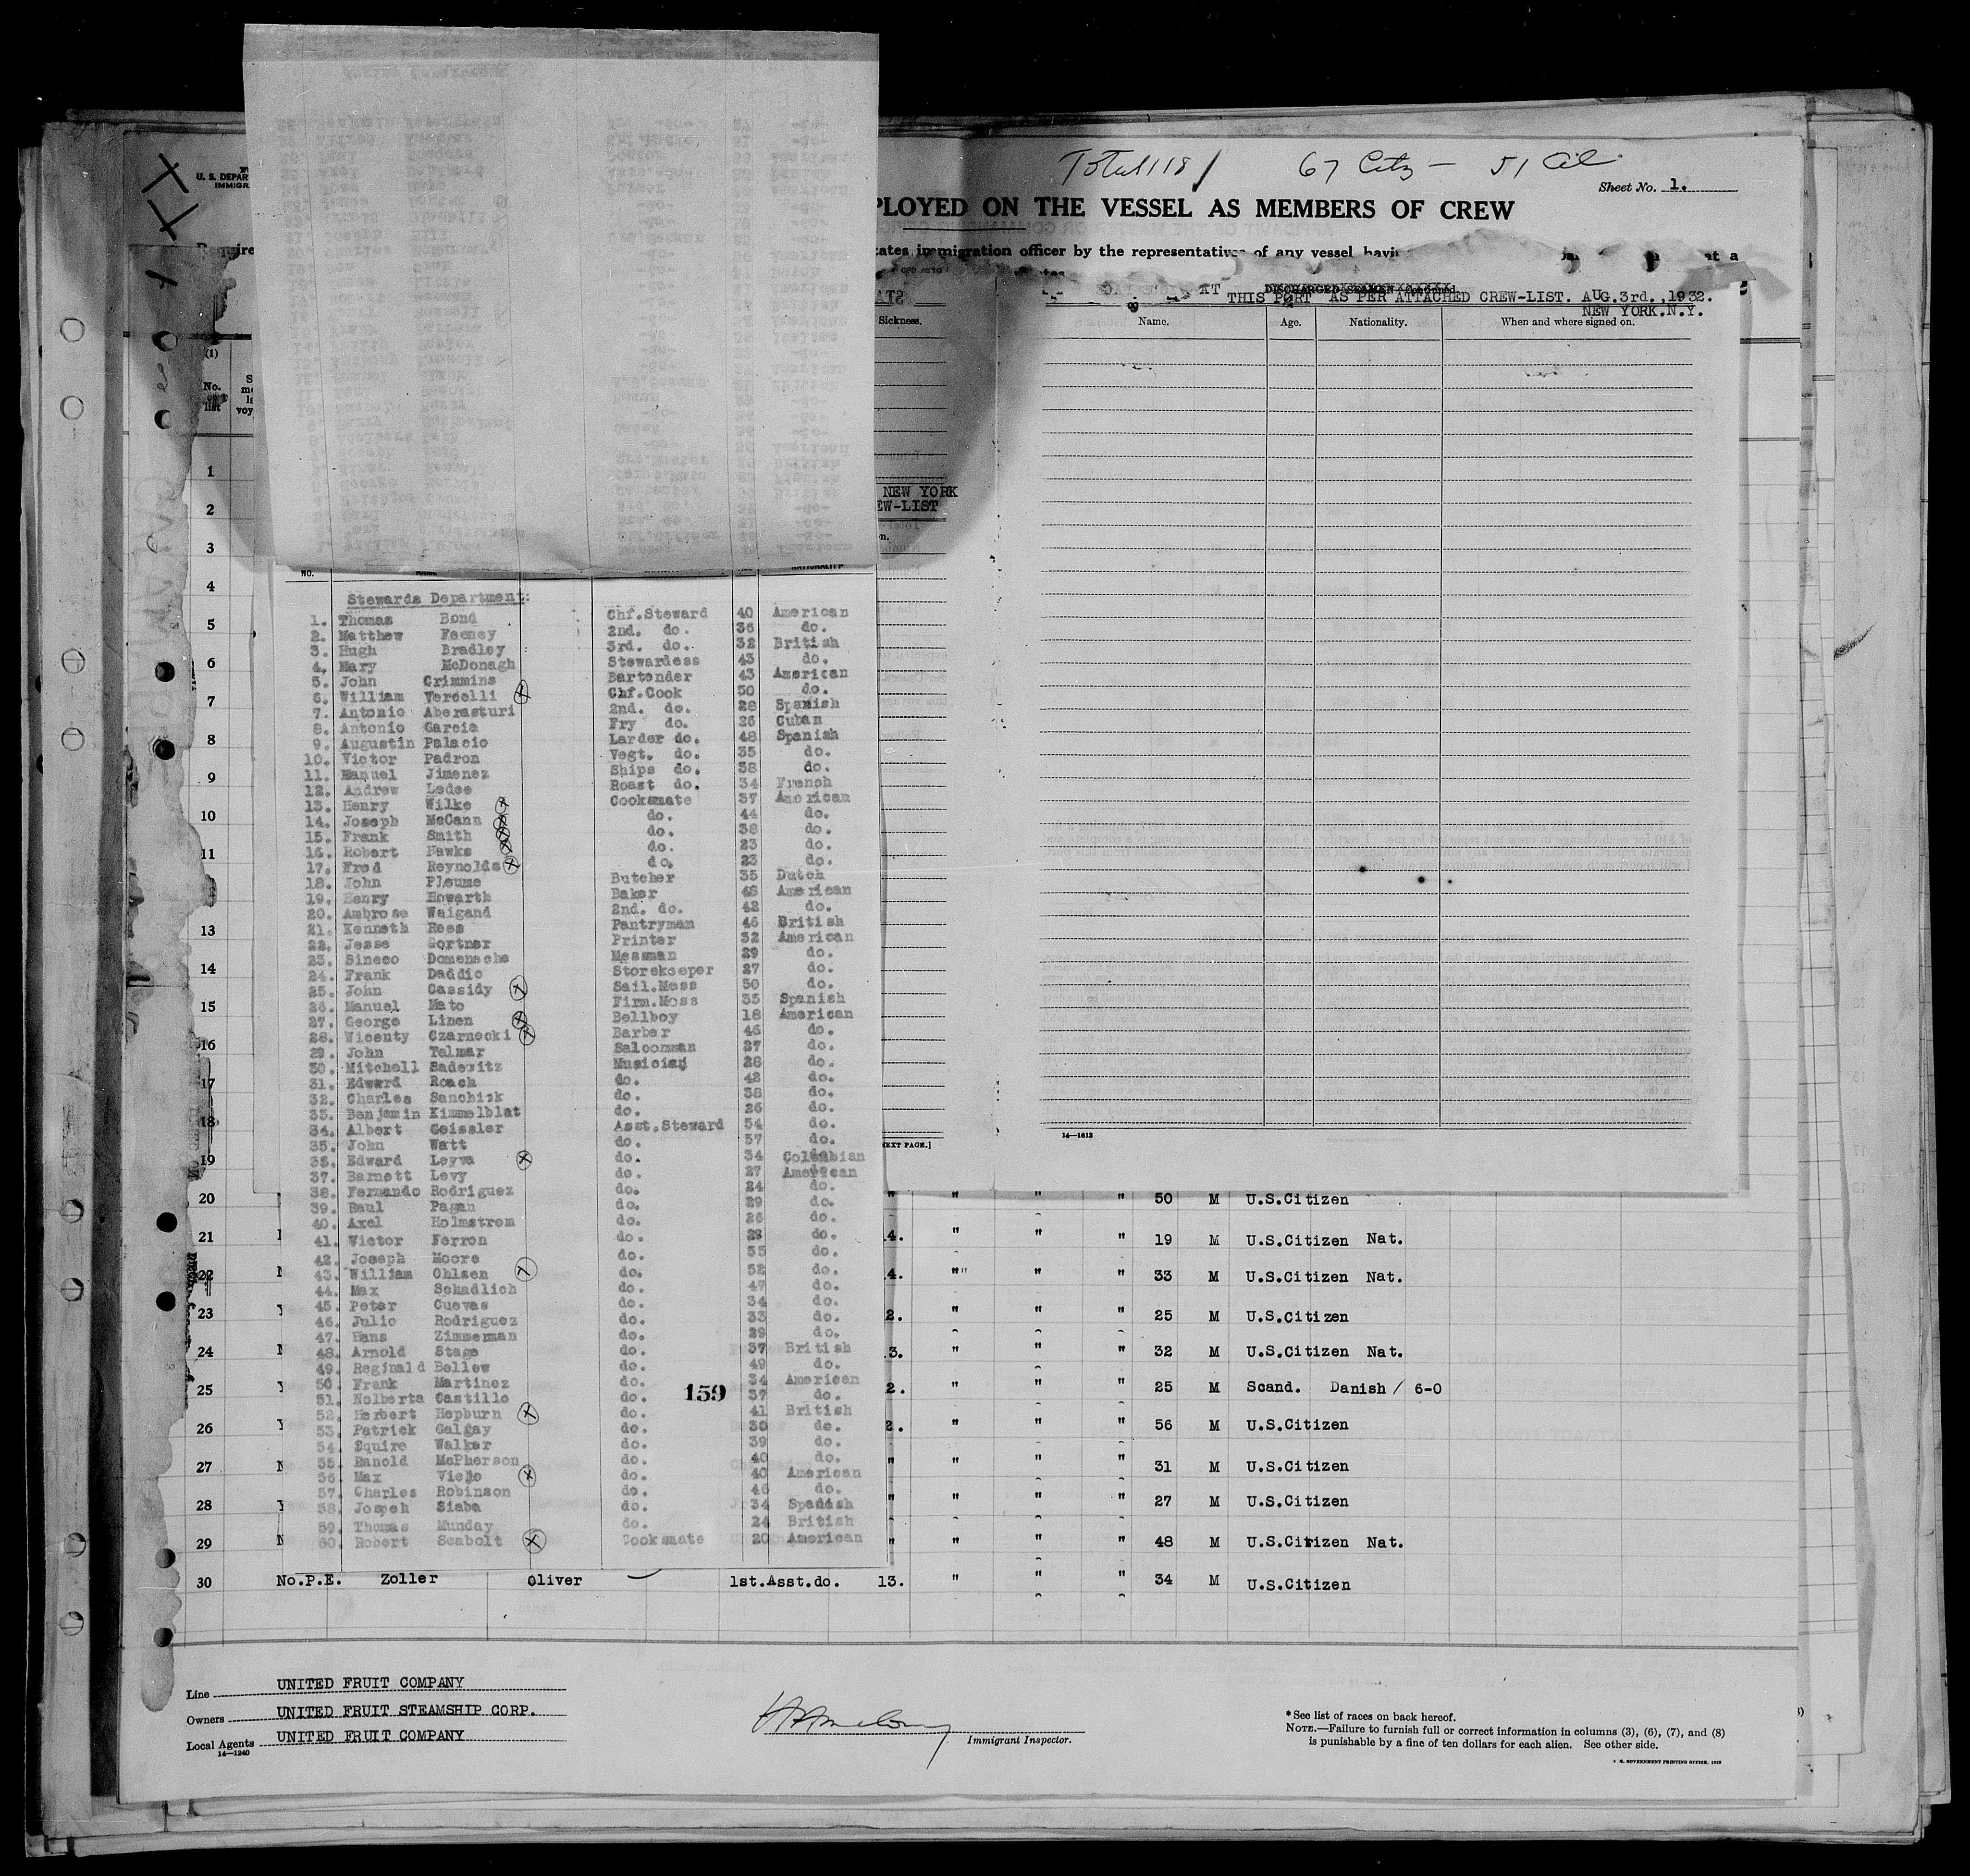 Total 118 / 67 Citz — 51 Al
Sheet No. 1.
U. S. DEPAR
IMMIGRA
PLOYED ON THE VESSEL AS MEMBERS OF CREW
Require
tates immigration officer by the representatives of any vessel
at a
AT DISCHARGED SEAMEN
THIS PORT AS PER ATTACHED CREW-LIST. AUG.3rd.,1932.
NEW YORK.N.Y.
Sickness. Name. Age. Nationality. When and where signed on.
(1)
No. on list
NEW YORK
EW-LIST
NO.
Stewards Department:
1. Thomas Bond Chf.Steward 40 American
2. Matthew Feeney 2nd. do. 36 do.
3. Hugh Bradley 3rd. do. 32 British
4. Mary McDonagh Stewardess 43 do.
5. John Crimmins Bartender 43 American
6. William Vercelli Chf.Cook 50 do.
7. Antonio Aberasturi 2nd. do. 28 Spanish
8. Antonio Garcia Fry do. 26 Cuban
9. Augustin Palacio Larder do. 48 Spanish
10. Victor Padron Vegt. do. 35 do.
11. Manuel Jimenez Ships do. 38 do.
12. Andrew Ledee Roast do. 34 French
13. Henry Wilke Cooksmate 37 American
14. Joseph McCann do. 44 do.
15. Frank Smith do. 38 do.
16. Robert Hawks do. 23 do.
17. Fred Reynolds do. 23 do.
18. John Pleume Butcher 35 Dutch
19. Henry Howarth Baker 48 American
20. Ambrose Waigand 2nd. do. 42 do.
21. Kenneth Rees Pantryman 46 British
22. Jesse Gortner Printer 32 American
23. Sineco Domensche Messman 29 do.
24. Frank Daddio Storekeeper 27 do.
25. John Cassidy Sail.Mess 50 do.
26. Manuel Mato Firm.Mess 35 Spanish
27. George Linen Bellboy 18 American
28. Wicenty Czarnecki Barber 46 do.
29. John Telmar Saloonman 27 do.
30. Mitchell Sadewitz Musician 28 do.
31. Edward Roach do. 42 do.
32. Charles Sanchick do. 38 do.
33. Benjamin Kimmelblat do. 26 do.
34. Albert Geissler Asst.Steward 54 do.
35. John Watt do. 57 do.
36. Edward Leyva do. 34 Colombian
37. Barnett Levy do. 27 American
38. Fernando Rodriguez do. 24 do.
39. Raul Pagan do. 29 do.
40. Axel Holmstrom do. 26 do.
41. Victor Ferron do. 28 do.
42. Joseph Moore do. 55 do.
43. William Ohlsen do. 52 do.
44. Max Schadlich do. 47 do.
45. Peter Cuevas do. 34 do.
46. Julio Rodriguez do. 33 do.
47. Hans Zimmerman do. 29 do.
48. Arnold Stage do. 37 British
49. Reginald Bellew do. 49 do.
50. Frank Martinez do. 34 American
51. Nolberta Castillo do. 37 do.
52. Herbert Hepburn do. 41 British
53. Patrick Galgay do. 30 do.
54. Squire Walker do. 39 do.
55. Ranold McPherson do. 40 do.
56. Max Viejo do. 40 American
57. Charles Robinson do. 46 do.
58. Jospeh Siaba do. 34 Spanish
59. Thomas Munday do. 24 British
60. Robert Seabolt Cooksmate 20 American
159
1
2
3
4
5
6
7
8
9
10
11
13
14
15
16
17
18
19
NEXT PAGE.]
14—1612
20 " " " 50 M U.S.Citizen
21 4. " " 19 M U.S.Citizen Nat.
22 4. " " " 33 M U.S.Citizen Nat.
23 2. " " " 25 M U.S.Citizen
24 3. " " " 32 M U.S.Citizen Nat.
25 2. " " " 25 M Scand. Danish / 6-0
26 2. " " " 56 M U.S.Citizen
27 " " " " 31 M U.S.Citizen
28 " " " " 27 M U.S.Citizen
29 " " " " 48 M U.S.Citizen Nat.
30 No.P.E. Zoller Oliver 1st.Asst.do. 13. " " " 34 M U.S.Citizen
Line UNITED FRUIT COMPANY
Owners UNITED FRUIT STEAMSHIP CORP.
Local Agents UNITED FRUIT COMPANY
14—1240
Immigrant Inspector.
* See list of races on back hereof.
NOTE.—Failure to furnish full or correct information in columns (3), (6), (7), and (8)
is punishable by a fine of ten dollars for each alien. See other side.
GOVERNMENT PRINTING OFFICE